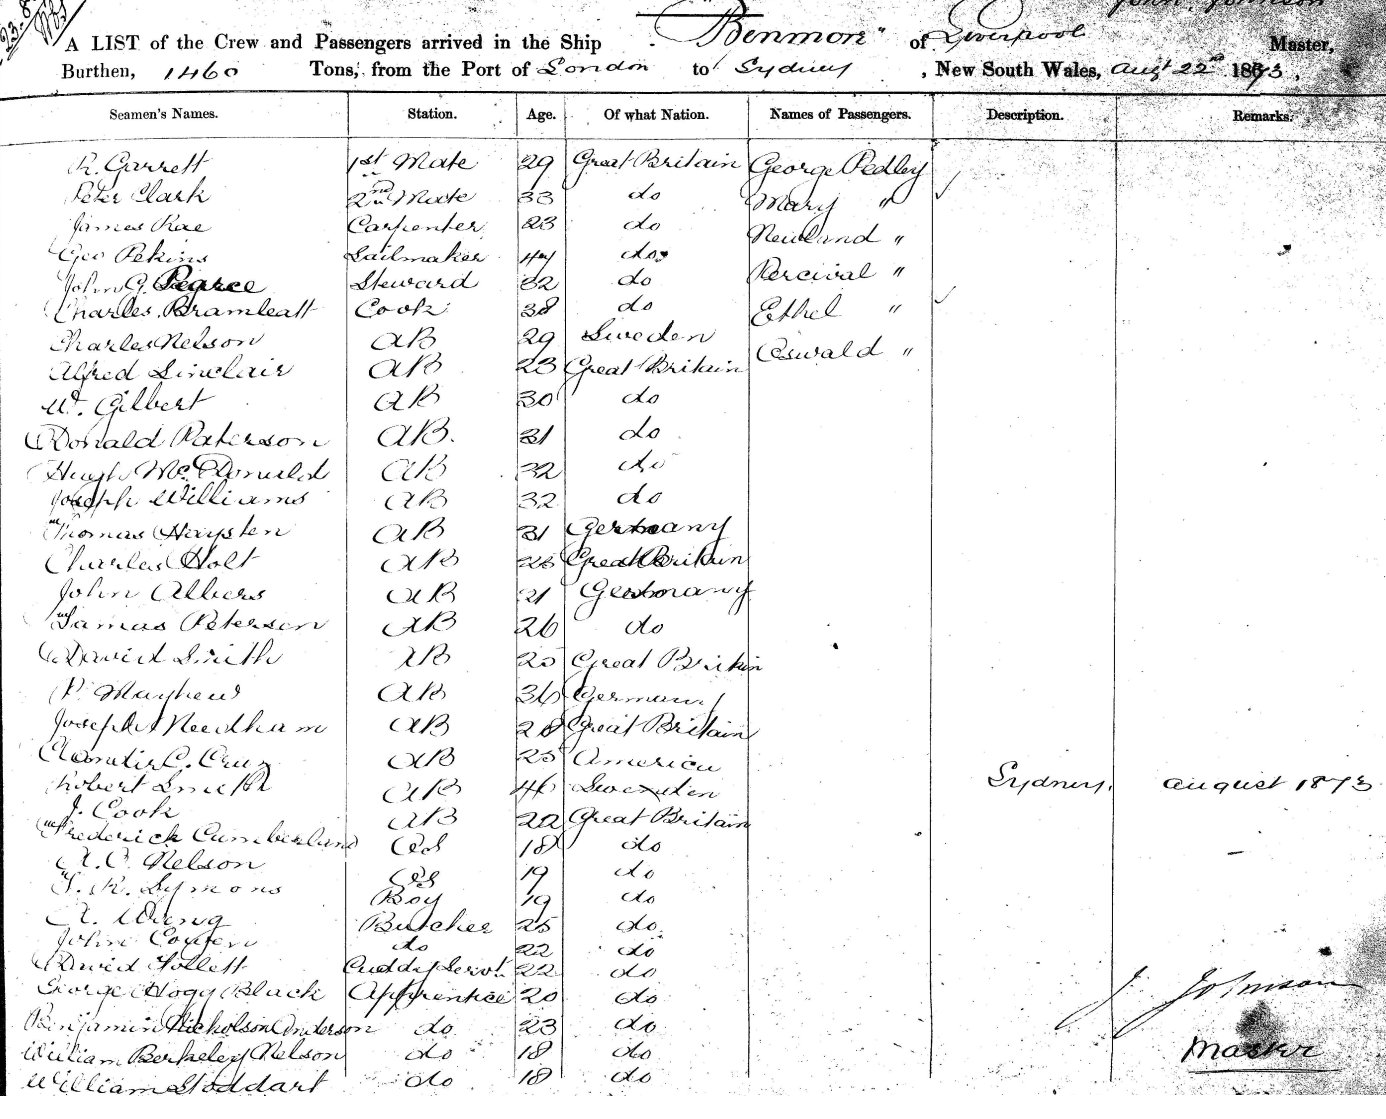 23.8
John Johnson
A LIST of the Crew and Passengers arrived in the Ship "Benmore" of Liverpool Master,
Burthen, 1460 Tons, from the Port of London to Sydney, New South Wales, Augt 22nd 1873.
Seamen's Names. Station. Age. Of what Nation. Names of Passengers. Description. Remarks.
R. Garrett 1st Mate 29 Great Britain George Pedley
Peter Clark 2nd Mate 33 do Mary "
James Rae Carpenter 23 do Newland "
Geo Pekins Sailmaker 44 do
John G. Pearce Steward 32 do Percival "
Charles Bramleatt Cook 38 do Ethel "
Charles Nelson AB 29 Sweden
Alfred Sinclair AB 23 Great Britain Oswald "
W. Gilbert AB 30 do
Donald Paterson AB. 31 do
Hugh McDonald AB 32 do
Joseph Williams AB 32 do
Thomas Haysten AB 31 Germany
Charles Holt AB 23 Great Britain
John Albers AB 21 Germany
Peterson AB 26 do
David Smith AB 25 Great Britain
P. Mayhew AB 36 Germany
Joseph Needham AB 28 Great Britain
C. Cruz AB 25 America
Robert Smith AB 46 Sweden Sydney. August 1873
J. Cook AB 22 Great Britain
Frederick Cumberland OS 18 do
A. C. Nelson OS 19 do
R. Symons Boy 19 do
A. Butcher 25 do
John Cowen do 22 do
David Follett Cuddy Servt. 22 do
George Hogg Black Apprentice 20 do
Benjamin Nicholson Anderson do 23 do
J. Johnson
William Berkeley Nelson do 18 do
Master
William Stoddart do 18 do